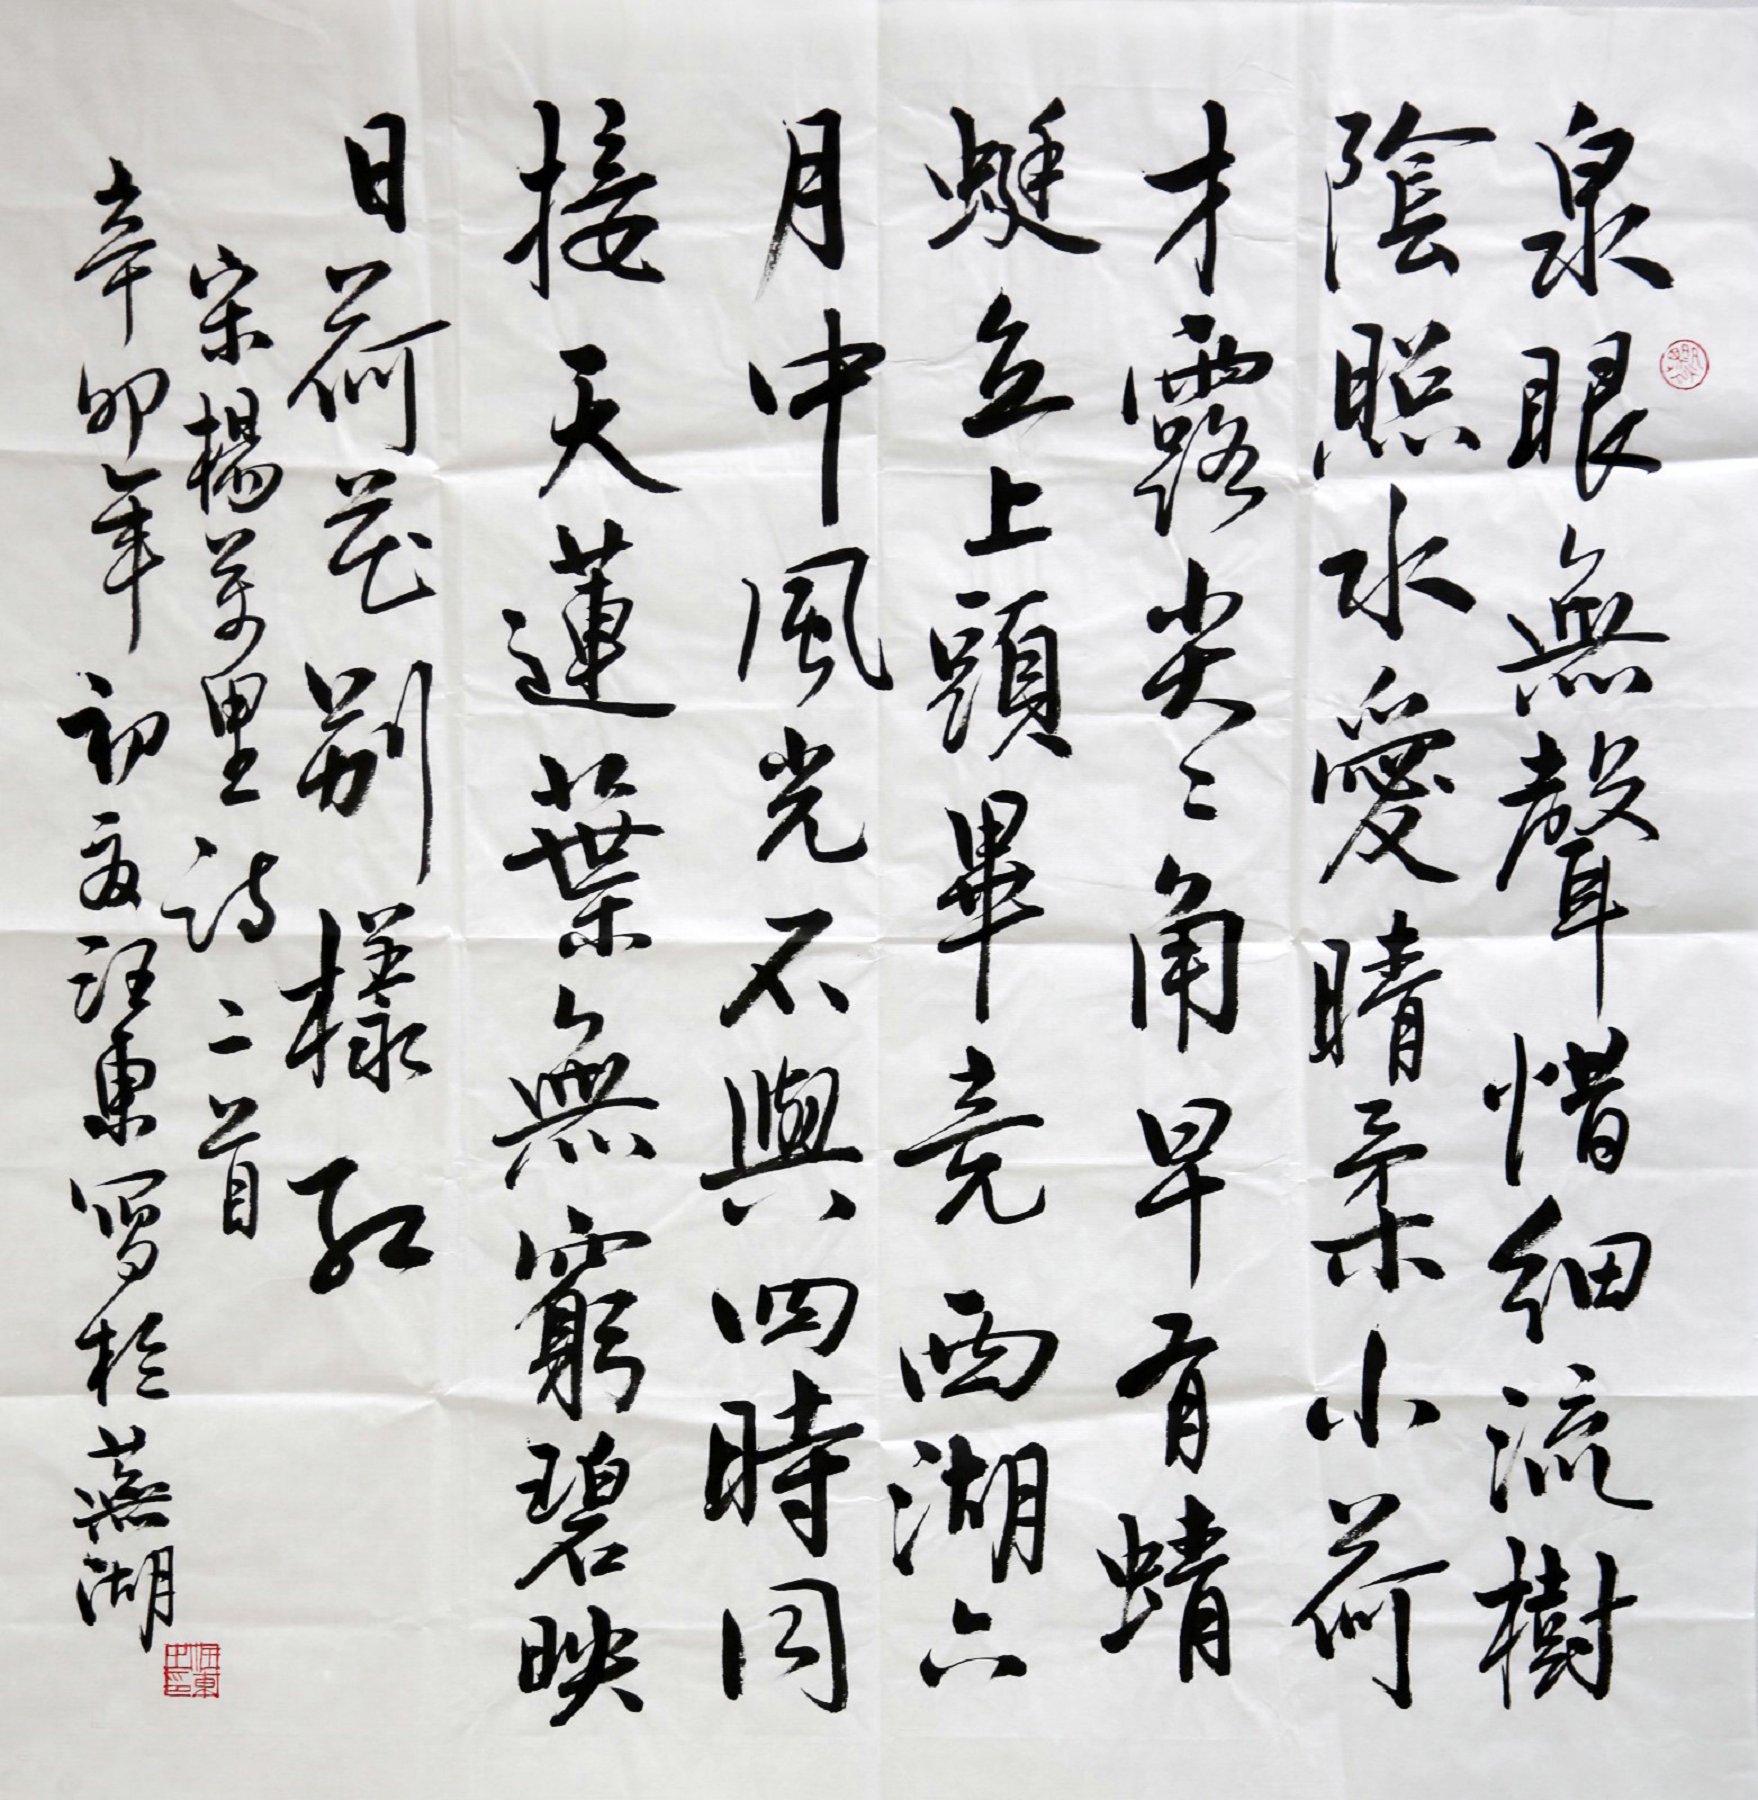 泉眼無聲惜細流樹
陰照水愛晴柔小荷
才露尖〻角早有蜻
蜓立上頭畢竟西湖六
月中風光不與四時同
接天蓮葉無窮碧映
日荷花别樣紅
宋楊萬里詩二首
辛卯年初夏汪東寫於蕪湖